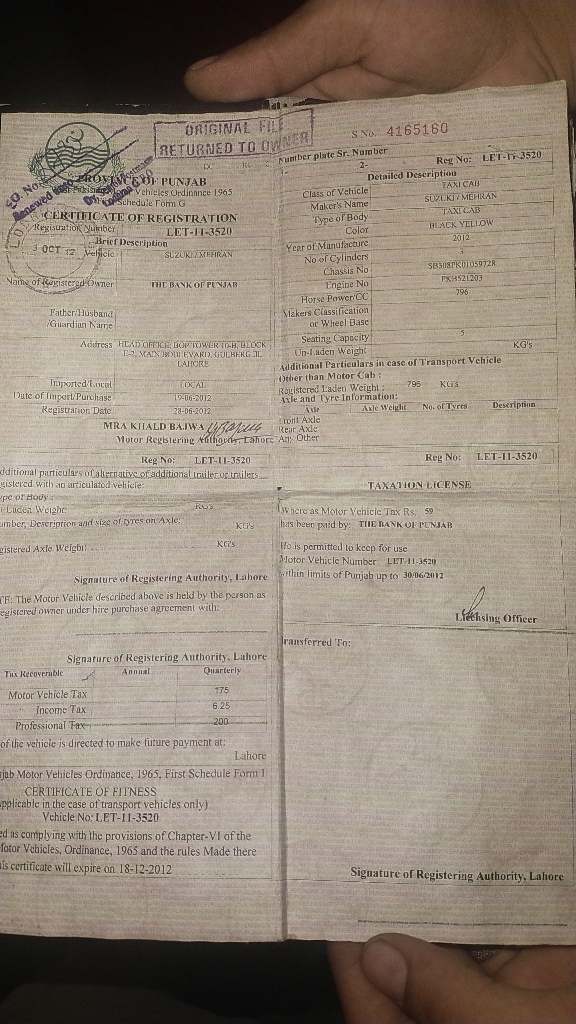 ORIGINAL FILE
RETURNED TO OWNER
PROVINCE OF PUNJAB
Vehicles Ordinance 1965
Schedule Form G
CERTIFICATE OF REGISTRATION
Registration Number LET-11-3520
Brief Description
Vehicle SUZUKI / MEHRAN
3 OCT 12
Name of Registered Owner THE BANK OF PUNJAB
Father/Husband
/Guardian Name
Address HEAD OFFICE, BOP TOWER 10-B, BLOCK
E-2, MAIN BOULEVARD, GULBERG III,
LAHORE
Imported/Local LOCAL
Date of Import/Purchase 19-06-2012
Registration Date 28-06-2012
MRA KHALD BAJWA
Motor Registering Authority, Lahore
Reg No: LET-11-3520
dditional particulars of alternative of additional trailer or trailers
gistered with an articulated vehicle:
ype of Body :
-Laden Weight KG's
umber, Description and size of tyres on Axle: KG's
gistered Axle Weight KG's
Signature of Registering Authority, Lahore
TE: The Motor Vehicle described above is held by the person as
egistered owner under hire purchase agreement with:
Signature of Registering Authority, Lahore
Tax Recoverable Annual Quarterly
Motor Vehicle Tax 175
Income Tax 6.25
Professional Tax 200
of the vehicle is directed to make future payment at:
Lahore
jab Motor Vehicles Ordinance, 1965, First Schedule Form I
CERTIFICATE OF FITNESS
pplicable in the case of transport vehicles only)
Vehicle No: LET-11-3520
ed as complying with the provisions of Chapter-VI of the
Motor Vehicles, Ordinance, 1965 and the rules Made there
is certificate will expire on 18-12-2012
S No. 4165160
Number plate Sr. Number
1- 2- Reg No: LET-11-3520
Detailed Description
Class of Vehicle TAXI CAB
Maker's Name SUZUKI / MEHRAN
Type of Body TAXI CAB
Color BLACK YELLOW
Year of Manufacture 2012
No of Cylinders
Chassis No SB308PK01059728
Engine No PKH521203
Horse Power/CC 796
Makers Classification
or Wheel Base
Seating Capacity 5
Un-Laden Weight KG's
Additional Particulars in case of Transport Vehicle
Other than Motor Cab :
Registered Laden Weight : 796 KG's
Axle and Tyre Information:
Axle Axle Weight No. of Tyres Description
Front Axle
Rear Axle
Any Other
Reg No: LET-11-3520
TAXATION LICENSE
Where as Motor Vehicle Tax Rs. 59
has been paid by: THE BANK OF PUNJAB
He is permitted to keep for use
Motor Vehicle Number LET-11-3520
within limits of Punjab up to 30/06/2012
Licensing Officer
Transferred To:
Signature of Registering Authority, Lahore